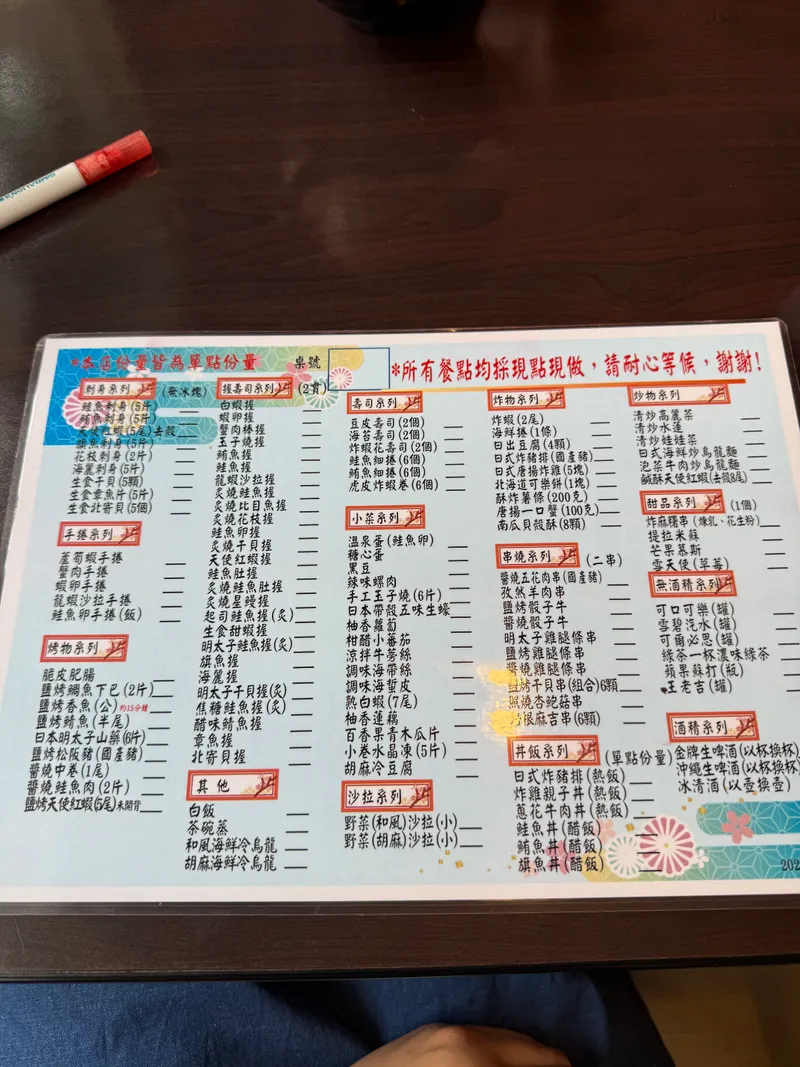 *本店份量皆為單點份量
桌號
*所有餐點均採現點現做，請耐心等候，謝謝!
刺身系列 (無冰塊)
鮭魚刺身(5片)
鮪魚刺身(5片)
天使紅蝦(5尾)去殼
旗魚刺身(5片)
花枝刺身(2片)
海麗刺身(5片)
生食干貝(5顆)
生食章魚片(5片)
生食北寄貝(5個)
手捲系列
蘆筍蝦手捲
蟹肉手捲
蝦卵手捲
龍蝦沙拉手捲
鮭魚卵手捲(飯)
烤物系列
脆皮肥腸
鹽烤鯛魚下巴(2片)
鹽烤香魚(公)約15分鐘
鹽烤鯖魚(半尾)
日本明太子山藥(6片)
鹽烤松阪豬(國產豬)
醬燒中卷(1尾)
醬燒鮭魚肉(2片)
鹽烤天使紅蝦(5尾)未開背
握壽司系列 (2貫)
白蝦握
蝦卵握
蟹肉棒握
玉子燒握
鮪魚握
鮭魚握
龍蝦沙拉握
炙燒鮭魚握
炙燒比目魚握
炙燒花枝握
鮭魚卵握
炙燒干貝握
天使紅蝦握
鮭魚肚握
炙燒鮭魚肚握
炙燒星鰻握
起司鮭魚握(炙)
生食甜蝦握
明太子鮭魚握(炙)
旗魚握
海麗握
明太子干貝握(炙)
焦糖鮭魚握(炙)
醋味鯖魚握
章魚握
北寄貝握
其他
白飯
茶碗蒸
和風海鮮冷烏龍
胡麻海鮮冷烏龍
壽司系列
豆皮壽司(2個)
海苔壽司(2個)
炸蝦花壽司(2個)
鮭魚細捲(6個)
鮪魚細捲(6個)
虎皮炸蝦卷(6個)
小菜系列
溫泉蛋(鮭魚卵)
糖心蛋
黑豆
辣味螺肉
手工玉子燒(6片)
日本帶殼五味生蠔
柚香蘿蔔
柑醋小蕃茄
涼拌牛蒡絲
調味海帶絲
調味海蜇皮
熟白蝦(7尾)
柚香蓮藕
百香果青木瓜片
小卷水晶凍(5片)
胡麻冷豆腐
沙拉系列
野菜(和風)沙拉(小)
野菜(胡麻)沙拉(小)
炸物系列
炸蝦(2尾)
海鮮捲(1條)
日出豆腐(4顆)
日式炸豬排(國產豬)
日式唐揚炸雞(5塊)
北海道可樂餅(1塊)
酥炸薯條(200克)
唐揚一口蟹(100克)
南瓜貝殼酥(8顆)
串燒系列 (二串)
醬燒五花肉串(國產豬)
孜然羊肉串
鹽烤骰子牛
醬燒骰子牛
明太子雞腿條串
鹽烤雞腿條串
醬燒雞腿條串
鹽烤干貝串(組合)6顆
照燒杏鮑菇串
麻吉串(6顆)
丼飯系列 (單點份量)
日式炸豬排(熱飯)
炸雞親子丼(熱飯)
蔥花牛肉丼(熱飯)
鮭魚丼(醋飯)
鮪魚丼(醋飯)
旗魚丼(醋飯)
炒物系列
清炒高麗菜
清炒水蓮
清炒娃娃菜
日式海鮮炒烏龍麵
泡菜牛肉炒烏龍麵
鹹酥天使紅蝦(去殼8尾)
甜品系列 (1個)
炸麻糬串(煉乳、花生粉)
提拉米蘇
芒果慕斯
雪天使(草莓)
無酒精系列
可口可樂(罐)
雪碧汽水(罐)
可爾必思(罐)
綠茶一杯濃味綠茶
蘋果蘇打(瓶)
王老吉(罐)
酒精系列
金牌生啤酒(以杯換杯)
沖繩生啤酒(以杯換杯)
冰清酒(以壺換壺)
202